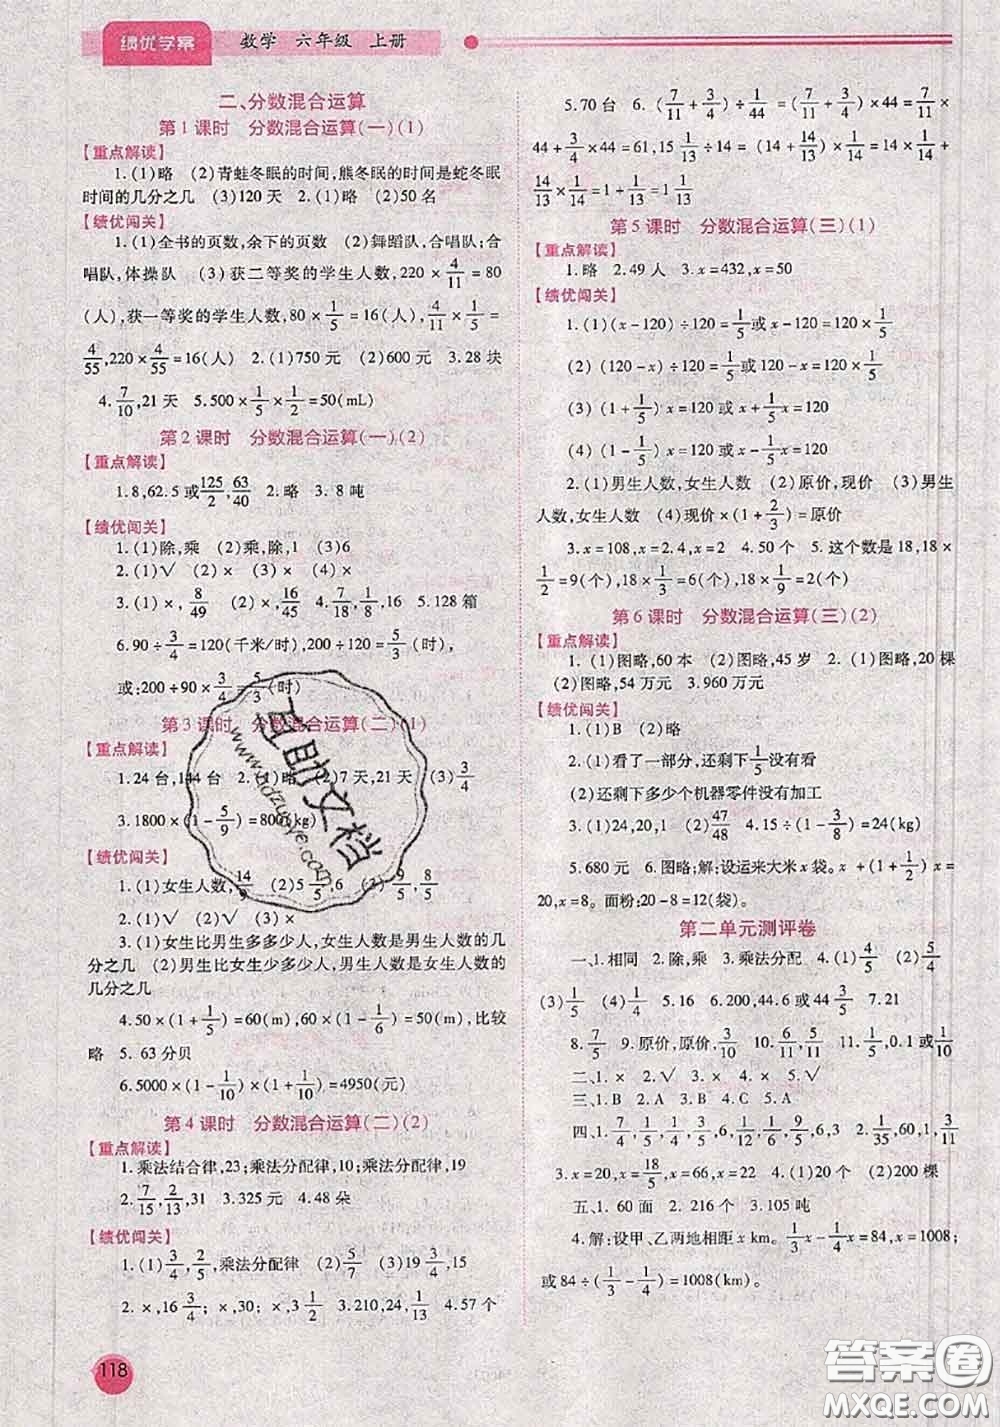 绩优学案 数学 六年级 上册
二、分数混合运算
第1课时 分数混合运算(一)(1)
【重点解读】
1.(1)略 (2)青蛙冬眠的时间,熊冬眠的时间是蛇冬眠
时间的几分之几 (3)120天 2.(1)略 (2)50名
【绩优闯关】
1.(1)全书的页数,余下的页数 (2)舞蹈队,合唱队;合
唱队,体操队 (3)获二等奖的学生人数,220×4/11=80
(人),获一等奖的学生人数,80×1/5=16(人),4/11×1/5=
4/55,220×4/55=16(人) 2.(1)750元 (2)600元 3.28块
4.7/10,21天 5.500×1/5×1/2=50(mL)
第2课时 分数混合运算(一)(2)
【重点解读】
1.8,62.5或125/2,63/40 2.略 3.8吨
【绩优闯关】
1.(1)除,乘 (2)乘,除,1 (3)6
2.(1)√ (2)× (3)×
3.(1)×,8/49 (2)×,16/45 4.7/18,1/8,16 5.128箱
6.90÷3/4=120(千米/时),200÷120=5/3(时),
或:200÷90×3/4=5/3(时)
第3课时 分数混合运算(二)(1)
【重点解读】
1.24台,144台 2.(1)略 (2)7天,21天 (3)3/4
3.1800×(1-5/9)=800(kg)
【绩优闯关】
1.(1)女生人数,14/9 (2)5 5/5,6 (3)9/5,8/5
2.(1)√ (2)√ (3)×
3.(1)女生比男生多多少人,女生人数是男生人数的几
分之几 (2)男生比女生多多少人,男生人数是女生人数的
几分之几
4.50×(1+1/5)=60(m),60×(1-1/6)=50(m),比较
略 5.63分贝
6.5000×(1-1/10)×(1+1/10)=4950(元)
第4课时 分数混合运算(二)(2)
【重点解读】
1.乘法结合律,23;乘法分配律,150;乘法分配律,19
2.7/15,2/13,31 3.325元 4.48朵
【绩优闯关】
1.(1)3/4,2/5,乘法分配律 (2)5/7 (3)4/19,15
2.×,16 3/4;×,30;×,3 1/2 3.210,24,1/13 4.57个
5.70台 6.(7/11+3/4)÷1/44=(7/11+3/4)×44=7/11×
44+3/4×44=61,15 1/13÷14=(14+14/13)×1/14=14×1/14+
14/13×1/14=1+1/13=1 1/13
第5课时 分数混合运算(三)(1)
【重点解读】
1.略 2.49人 3.x=432,x=50
【绩优闯关】
1.(1)(x-120)÷120=1/5或x-120=120×1/5
(2)(120-x)÷120=1/5或120-x=120×1/5
(3)(1+1/5)x=120或x+1/5x=120
(4)(1-1/5)x=120或x-1/5x=120
2.(1)男生人数,女生人数 (2)原价,现价 (3)男生
人数,女生人数 (4)现价×(1+2/3)=原价
3.x=108,x=2.4,x=2 4.50个 5.这个数是18,18×
1/2=9(个),18×1/3=6(个),18×1/9=2(个)
第6课时 分数混合运算(三)(2)
【重点解读】
1.(1)图略,60本 (2)图略,45岁 2.(1)图略,20棵
(2)图略,54万元 3.960万元
【绩优闯关】
1.(1)B (2)略
2.(1)看了一部分,还剩下1/5没有看
(2)还剩下多少个机器零件没有加工
3.(1)24,20,1 (2)47/48 4.15÷(1-3/8)=24(kg)
5.680元 6.图略;解:设运来大米x袋。x+(1+1/2)x=
20,x=8。面粉:20-8=12(袋)。
第二单元测评卷
一、1.相同 2.除,乘 3.乘法分配 4.(1)4/5 (2)5/4
(3)1/5 (4)1/4 5.16 6.200,44.6或44 3/5 7.21
8.7/5 9.原价,原价,3/10 10.6/11,5/11 11.5,0.1或1/10
二、1.× 2.√ 3.× 4.× 5.√
三、1.B 2.A 3.C 4.C 5.A
四、1.7/4,4/5,1/6,1/12,5/6,5/12,6,3 2.1/35,60,1,3/11
3.x=20,x=18/5,x=66,x=22 4.(1)20个 (2)200棵
五、1.60面 2.216个 3.105吨
4.解:设甲、乙两地相距x km。1/3x-1/4x=84,x=1008;
或84÷(1/3-1/4)=1008(km)。
118
互助文档
www.hdzuoye.com
答案圈
MXQE.COM